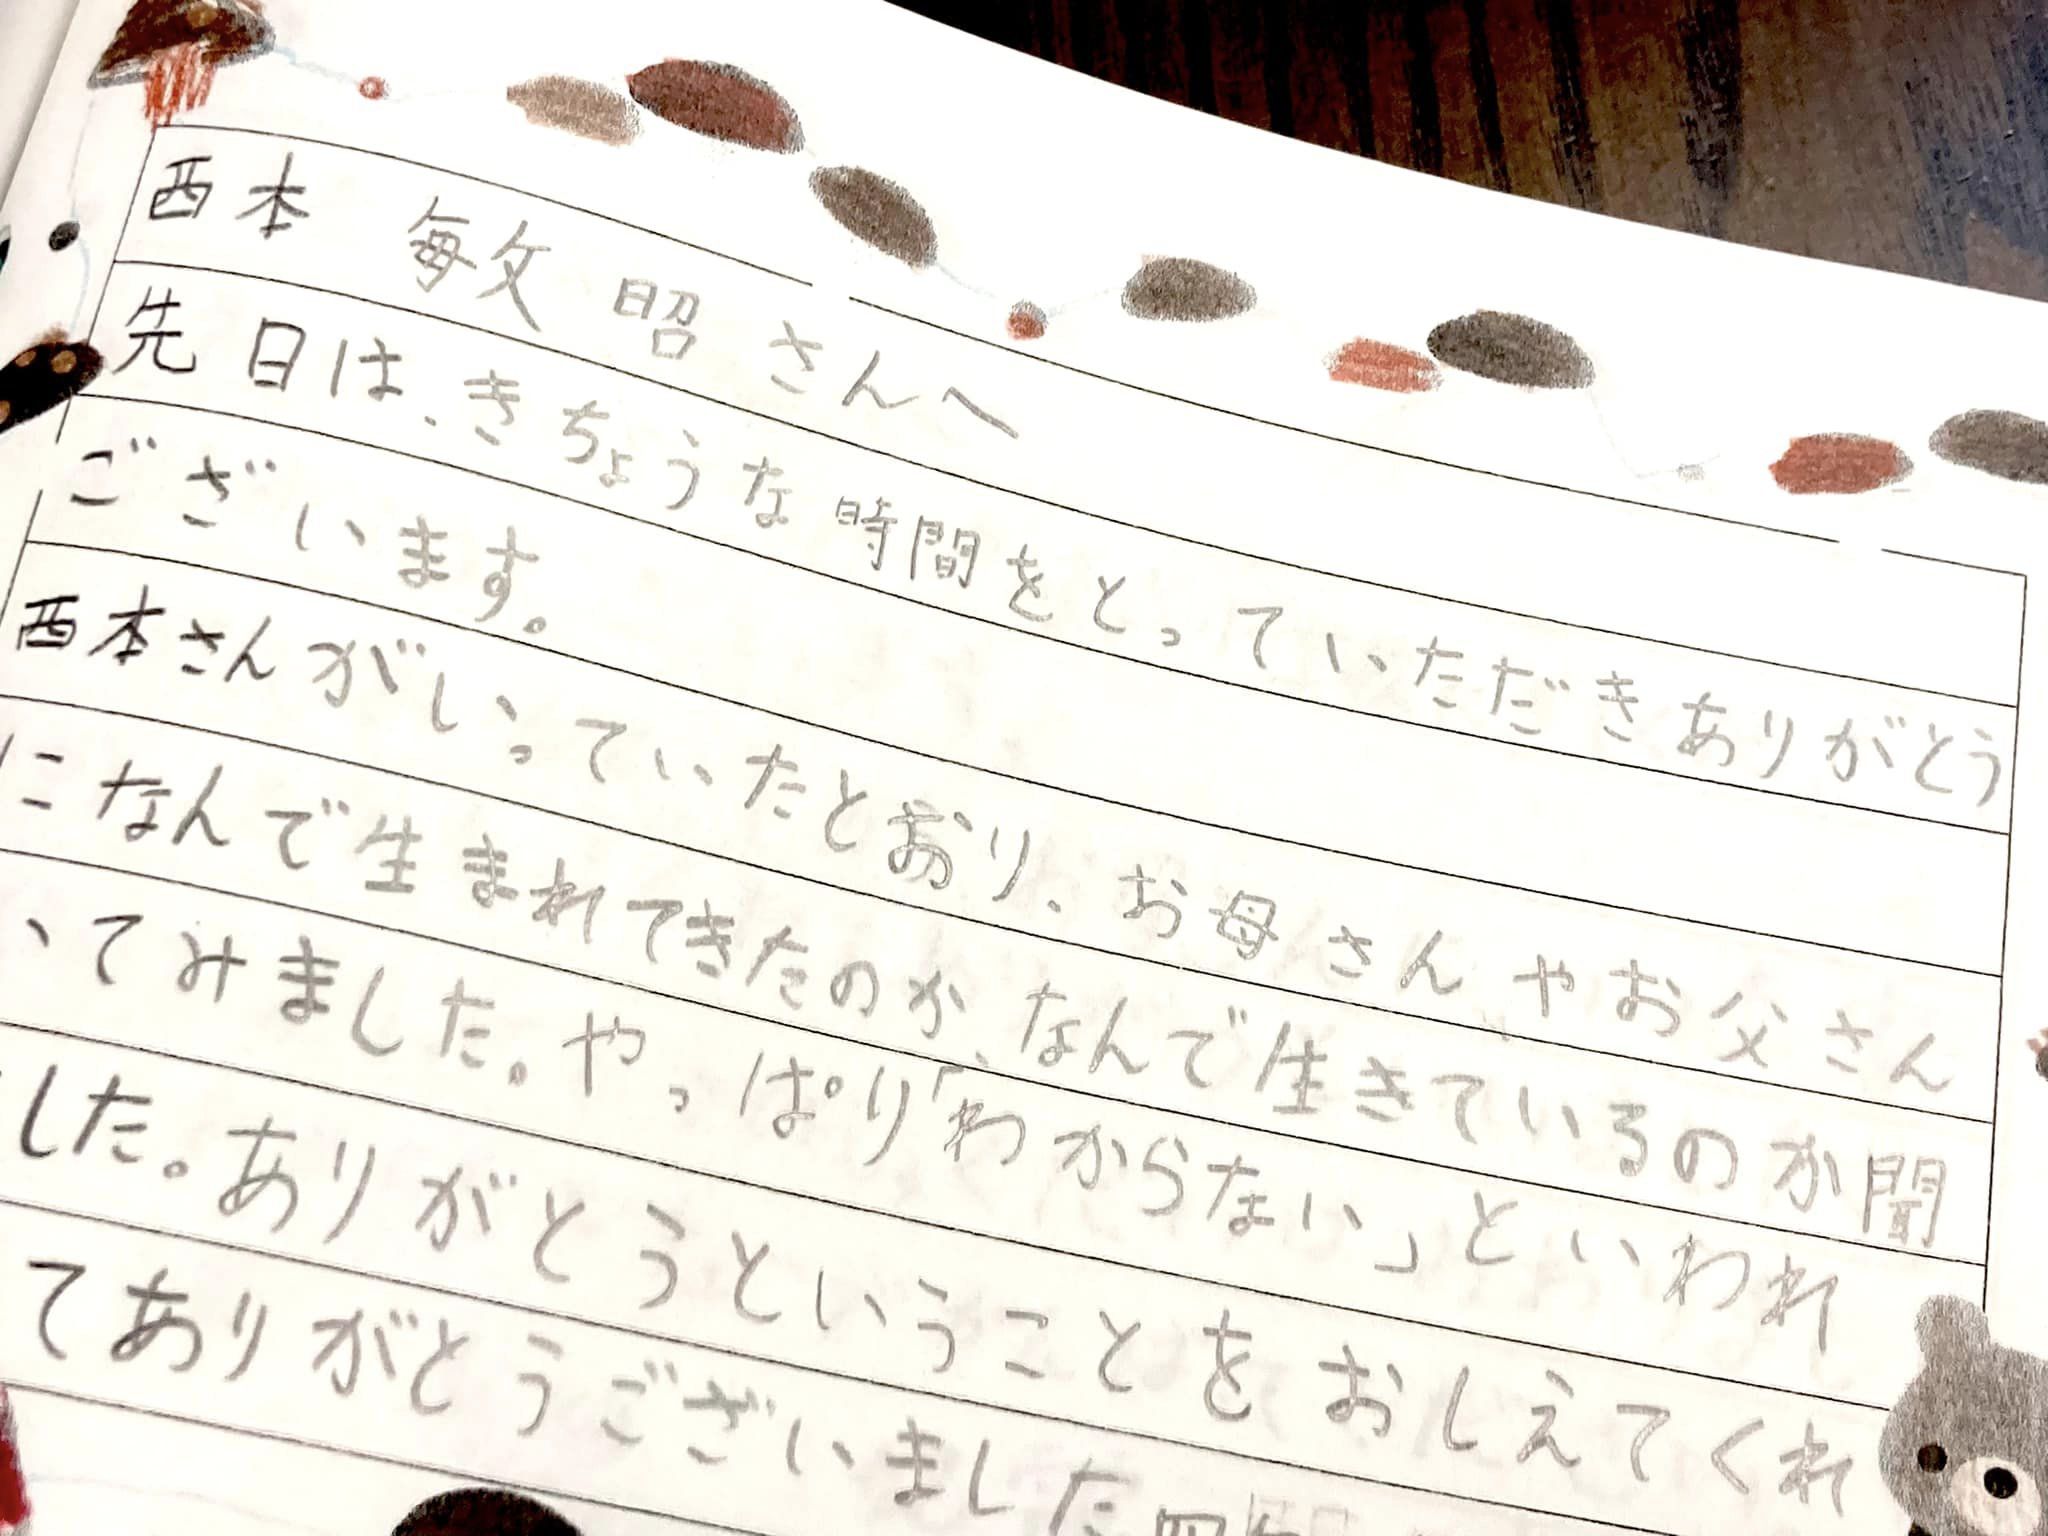 西本 敏昭さんへ
先日は、きちょうな時間をとっていただきありがとう
ございます。
西本さんがいっていたとおり、お母さんやお父さん
になんで生まれてきたのか、なんで生きているのか聞
いてみました。やっぱり「わからない」といわれ
ました。ありがとうということをおしえてくれ
てありがとうございました